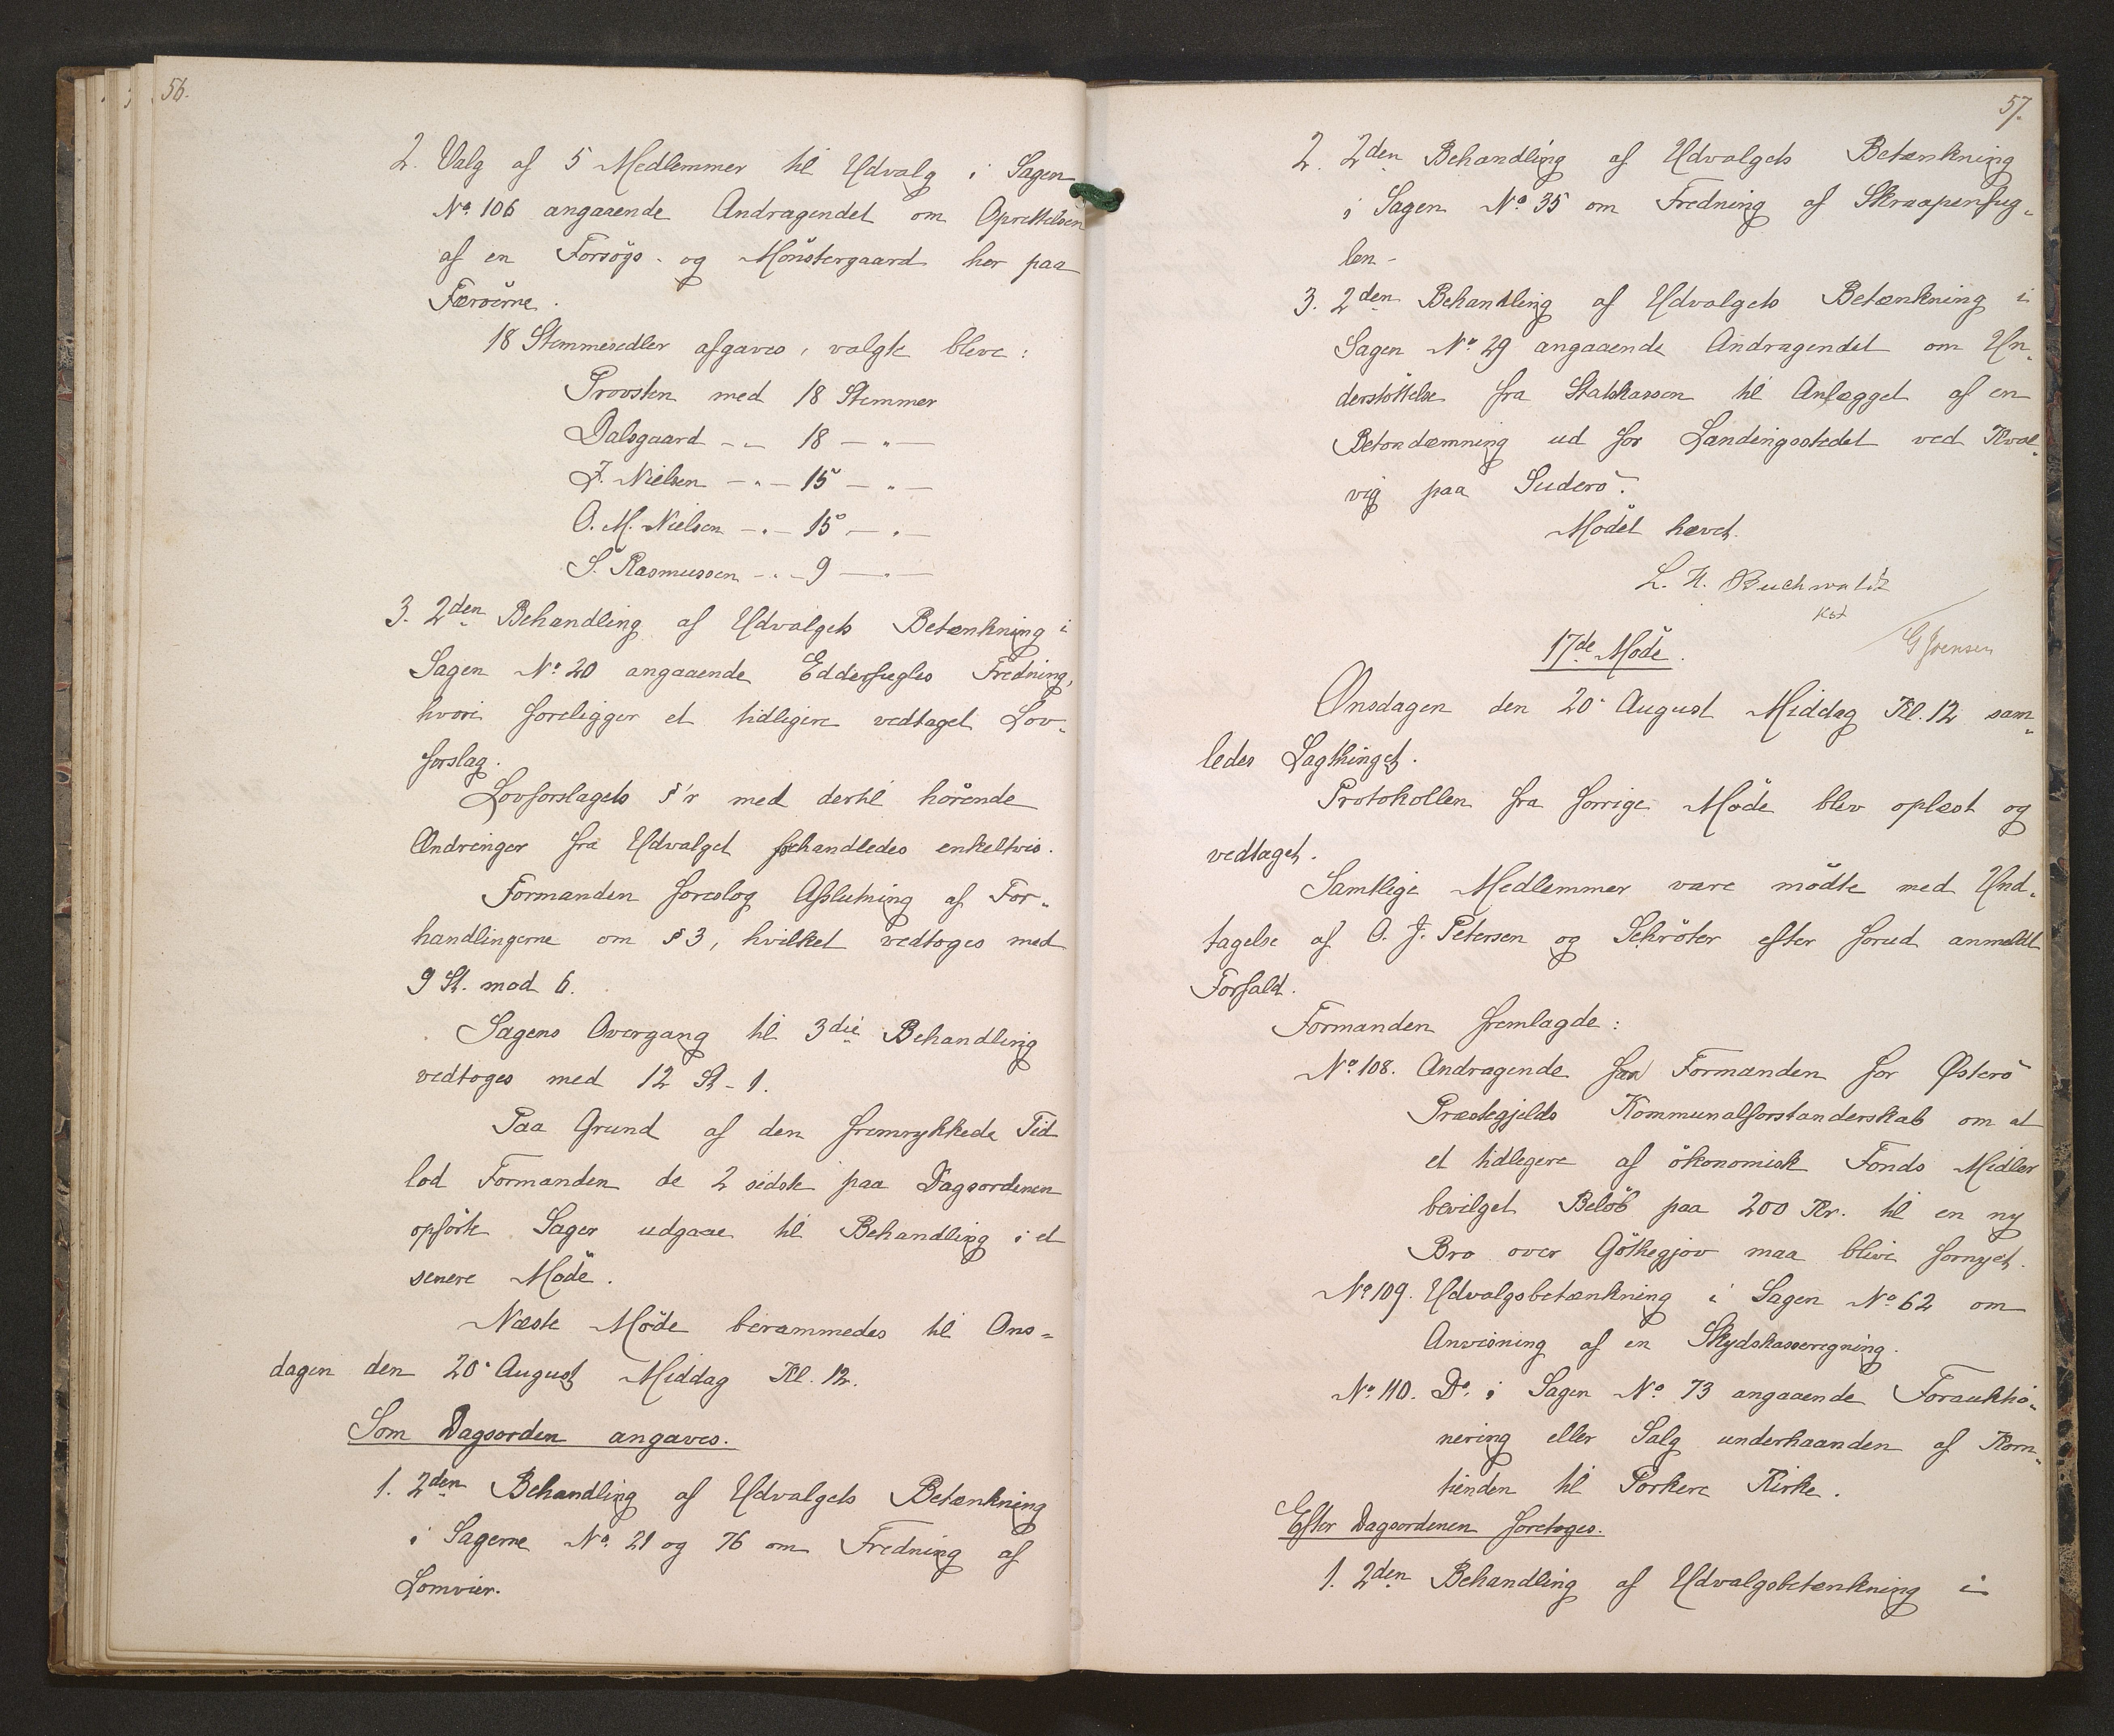 56.
2. Valg af 5 Medlemmer til Udvalg i Sagen
No. 106 angaaende Andragendet om Oprettelsen
af en Forsögs- og Mönstergaard her paa
Færöerne.
18 Stemmesedler afgaves, valgte bleve:
Provsten med 18 Stemmer
Dalsgaard -"- 18 -"-
J. Nielsen -"- 15 -"-
O. M. Nielsen -"- 15 -"-
S. Rasmussen -"- 9 -"-
3. 2den Behandling af Udvalgets Betænkning i
Sagen No. 20 angaaende Edderfugles Fredning,
hvori foreligger et tidligere vedtaget Lov-
forslag.
Lovforslagets §'r med dertil hörende
Ændringer fra Udvalget behandledes enkeltvis.
Formanden foreslog Afslutning af For-
handlingerne om § 3, hvilket vedtoges med
9 St. mod 6.
Sagens Overgang til 3die Behandling
vedtoges med 12 St - 1.
Paa Grund af den fremrykkede Tid
lod Formanden de 2 sidste paa Dagsordenen
opförte Sager udgaae til Behandling i et
senere Möde.
Næste Möde berammedes til Ons-
dagen den 20. August Middag Kl. 12.
Som Dagsorden angaves.
1. 2den Behandling af Udvalgets Betænkning
i Sagerne No. 21 og 76 om Fredning af
Lomvier.
57.
2. 2den Behandling af Udvalgets Betænkning
i Sagen No. 35 om Fredning af Skraapenfug-
len-
3. 2den Behandling af Udvalgets Betænkning i
Sagen No. 29 angaaende Andragendet om Un-
derstöttelse fra Statskassen til Anlægget af en
Betondæmning ud for Landingsstedet ved Kval-
vig paa Suderö.
Mödet hævet.
L. H. Buchwaldt
Kst
G Joensen
17de Möde.
Onsdagen den 20. August Middag Kl. 12 sam-
ledes Lagthinget.
Protokollen fra forrige Möde blev oplæst og
vedtaget.
Samtlige Medlemmer vare mödte med Und-
tagelse af O. J. Petersen og Schröter efter forud anmeldt
Forfald.
Formanden fremlagde:
No. 108. Andragende fra Formanden for Österö
Præstegjelds Kommunalforstanderskab om at
et tidligere af ökonomisk Fonds Midler
bevilget Belöb paa 200 Kr. til en ny
Bro over Göthegjov maa blive fornyet.
No. 109. Udvalgsbetænkning i Sagen No. 62 om
Anvisning af en Skydskasseregning.
No. 110. Do. i Sagen No. 73 angaaende Forauktio-
nering eller Salg underhaanden af Korn-
tienden til Porkere Kirke.
Efter Dagsordenen foretoges.
1. 2den Behandling af Udvalgsbetænkning i